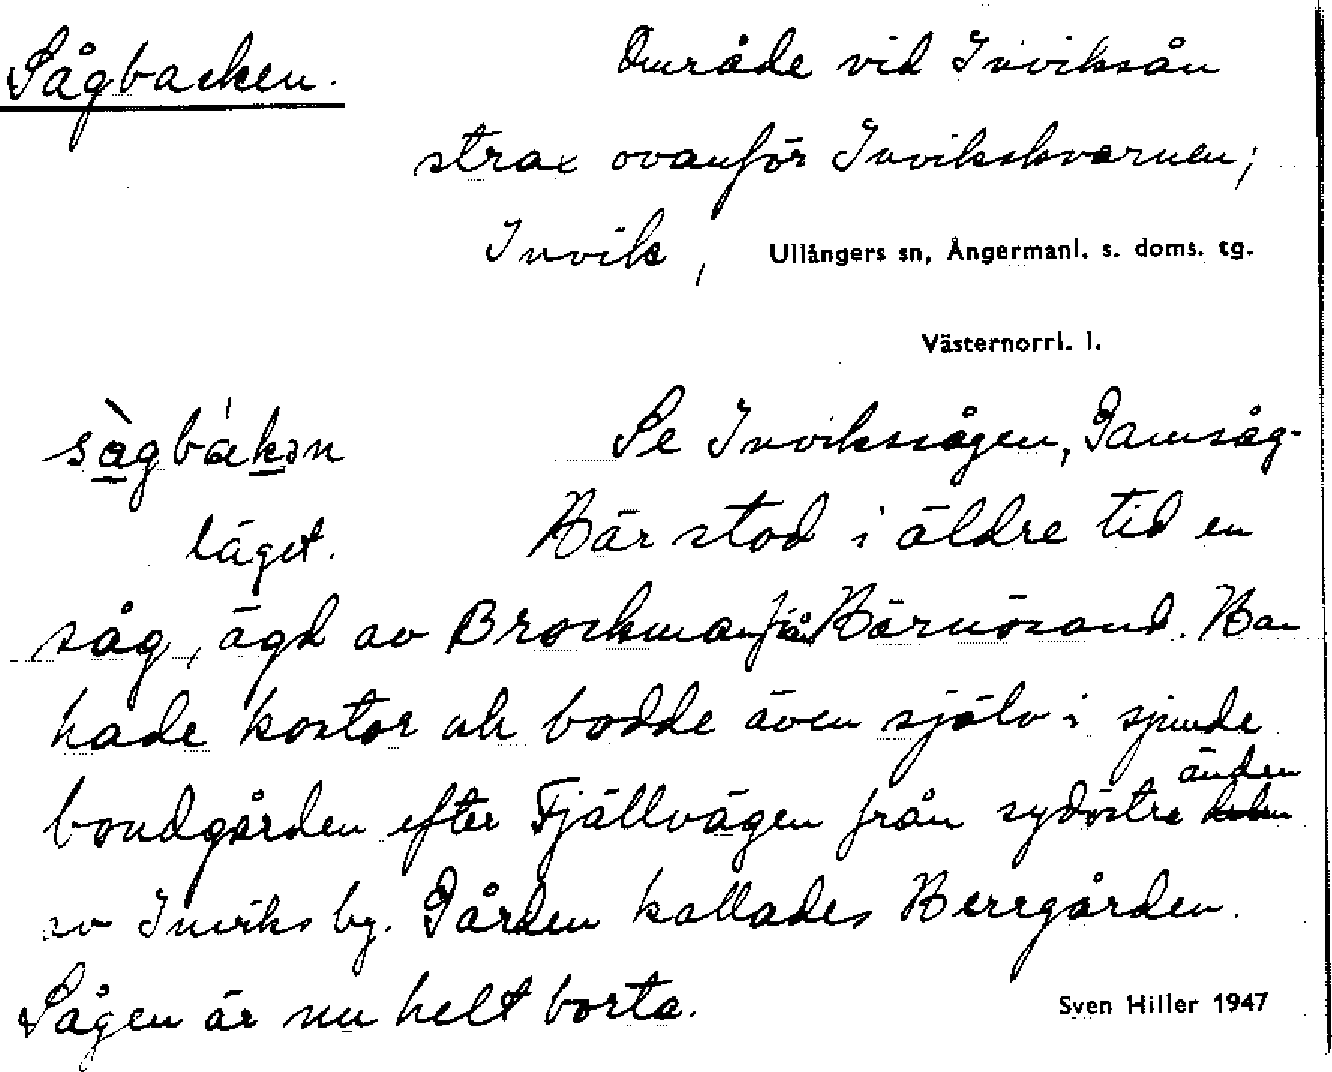 Sågbacken. Område vid Inviksån
strax ovanför Invikskvarnen;
Invik, Ullångers sn, Ångermanl. s. doms. tg.
Västernorrl. l.
sàgbákən Se Invikssågen, Gamsåg-
läget. Här stod i äldre tid en
såg, ägd av Brockman från Härnösand. Han
hade kontor och bodde även själv i sjunde
bondgården efter Fjällvägen från sydöstra änden
av Inviks by. Gården kallades Herrgården.
Sågen är nu helt borta.
Sven Hiller 1947